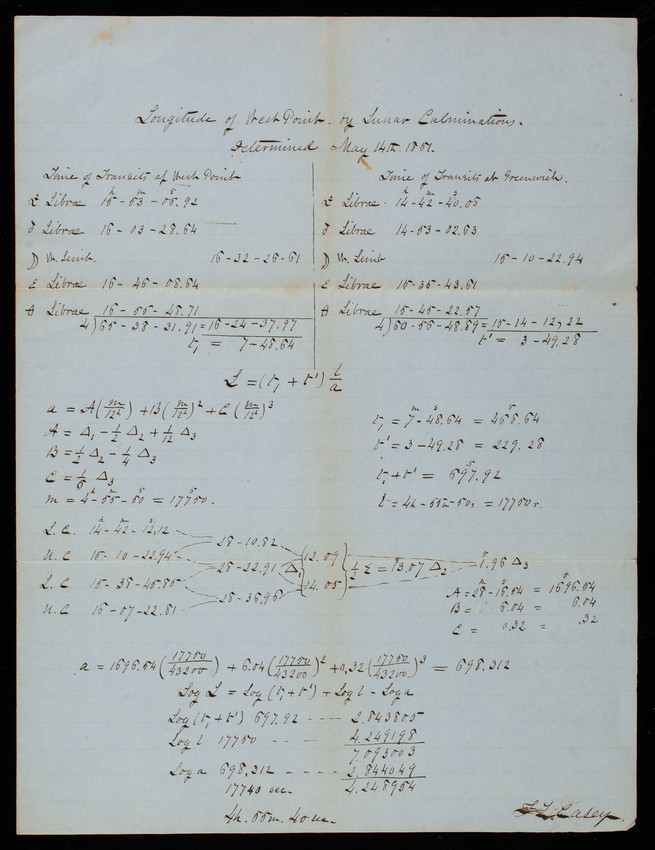 Longitude of West Point by Lunar Culminations.
Determined May 14th 1851.
Time of Transits at West Point
Librae 15 - 53 - 05.92
Librae 16 - 03 - 28.64
W. Limb. 16-32-26-61
ε Librae 16 - 46 - 08.64
θ Librae 16 - 55 - 48.71
4)65 - 38 - 31.91 = 16-24-37.97
t, = 7-48.64
Time of Transits at Greenwich.
Librae 14-42-40.05
Librae 14-53-02.63
W. Limb 15-10-22.94
ε Librae 15-35-43.61
θ Librae 15-45-22.57
4)60-56-48.89 = 15-14-12,22
t' = 3-49,28
L = (t, + t') l/a
a = A(m/12h) + B(m/12h)² + C(m/12h)³
A = Δ1 - ½ Δ2 + 1/12 Δ3
B = ½ Δ2 - ¼ Δ3
C = 1/6 Δ3
m = 4h-55m-50s = 17750s.
t, = 7m-48s.64 = 468s.64
t' = 3-49.28 = 229.28
t, + t' = 697s.92
l = 4h-55m-50s = 17750s.
L.C. 14h-42m-12s,12
28-10.82
U.C 15-10-22.94
12.09
28-22.91 Δ, ½ Σ = 13.07 Δ2 1s.96 Δ3
L.C. 15-38-45.85
14.05
28-36.96
U.C 16-07-22.81
A = 28m-16s.54 = 1696s.54
B = 6.04 = 6.04
C = 0.32 = .32
a = 1696.54 (17750/43200) + 6.04 (17750/43200)² + 0,32 (17750/43200)³ = 698.312
Log L = Log (t, + t') + Log l - Log a
Log (t, + t') 697.92 ---- 2.843805
Log l 17750 --- 4.249198
7.093003
Log a 698,312 ---- 2.844049
17740 sec. 4.248954
4h. 55m. 40sec.
T L Casey.